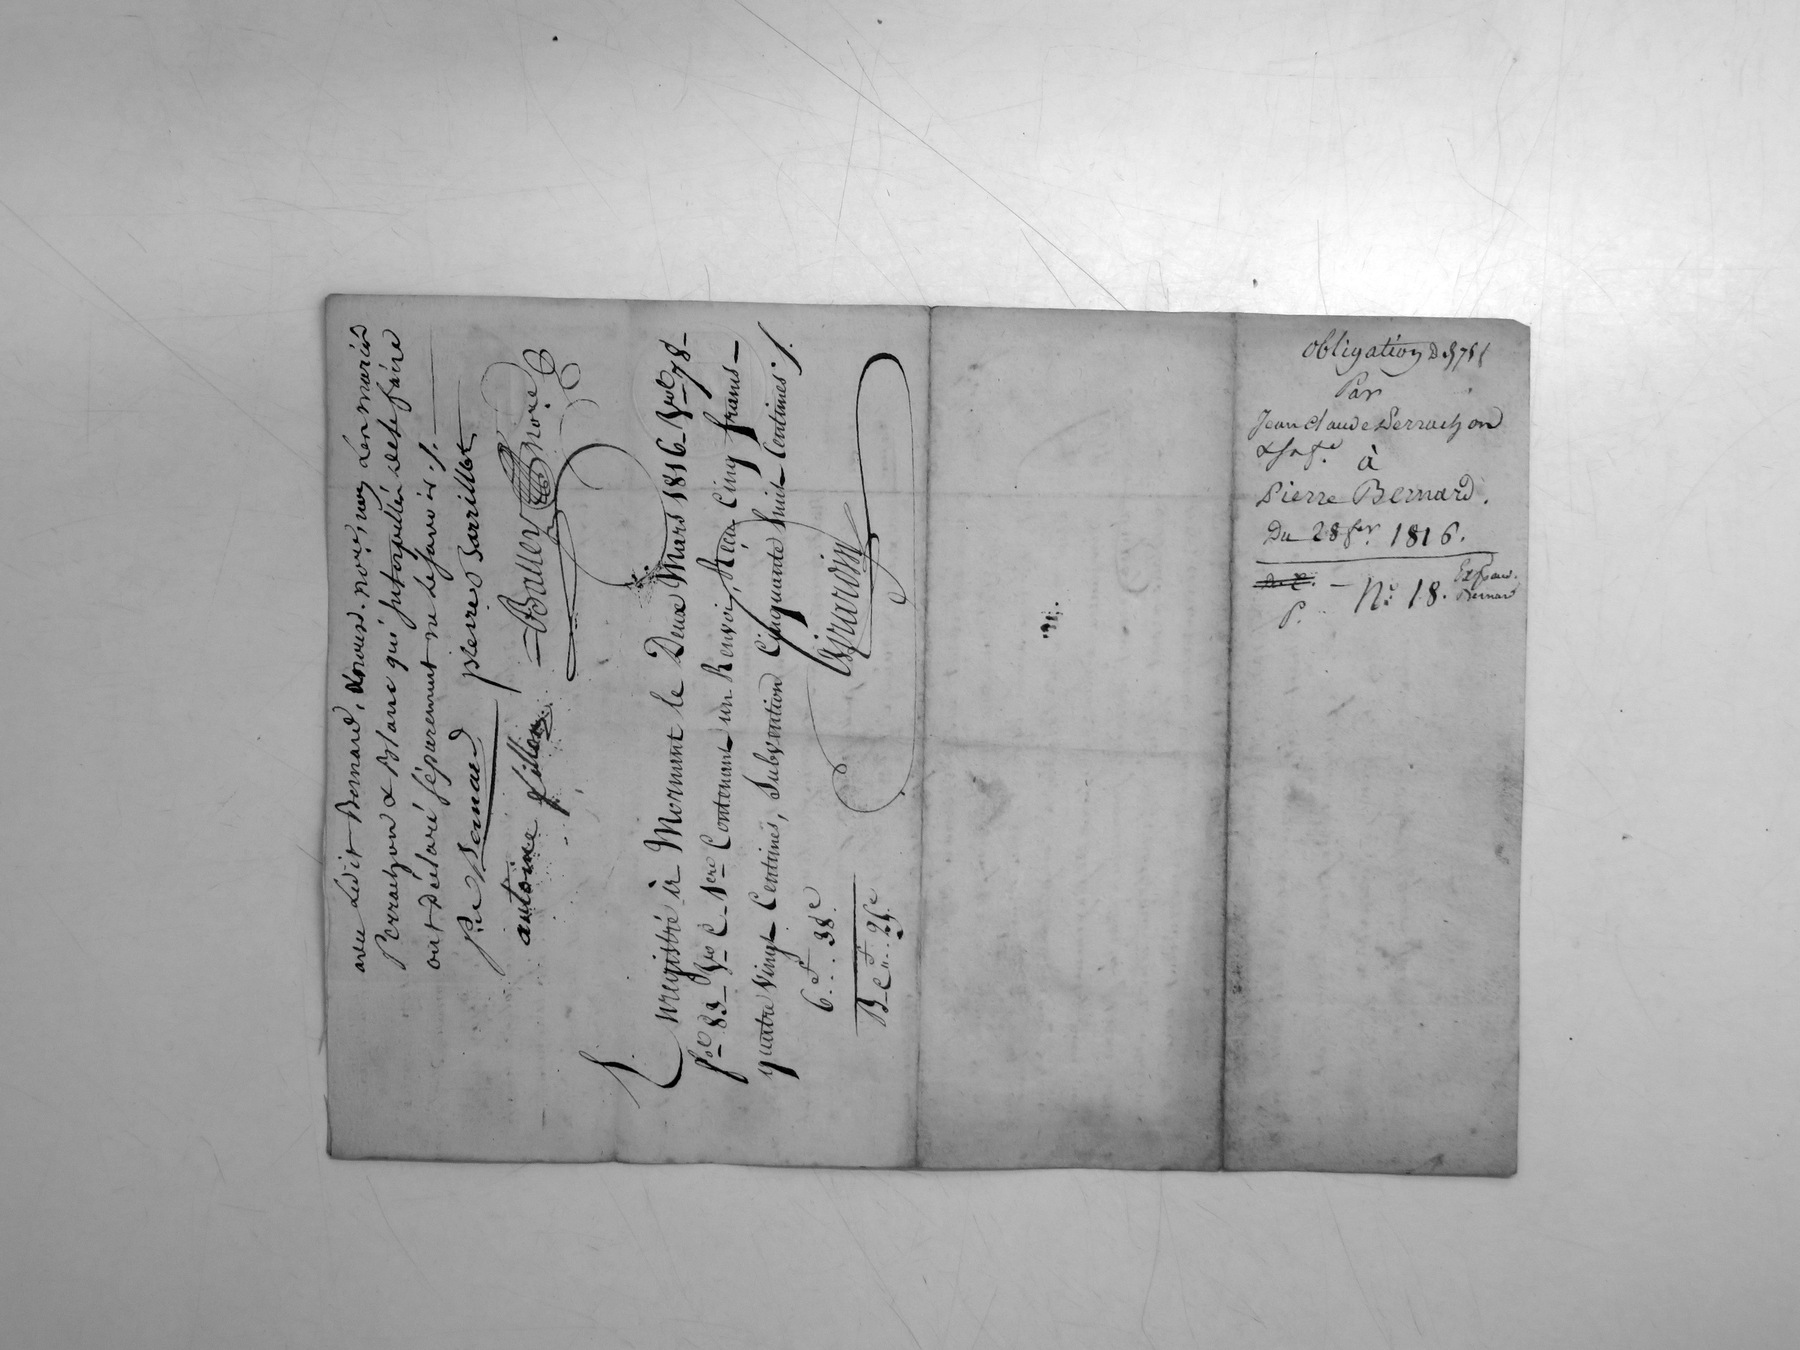 avec Ledit Bernard, & nous. no.re, non Les mariés
Perrachon & Blanc qui interpellés de le faire
ont déclaré séparément ne le savoir ./.
P.re Bernard pierre Barrillot
antoine fillon Baller no.re
Enregistré à Mornant le Deux Mars 1816 V.o 78
f.o 83 V.o C. 1ere Contenant un Renvoi, Reçu Cinq francs
quatre vingt Centimes, Subvention Cinquante huit Centimes ./.
6.F.. 38.c
Girardin
Obligation D.
Par
Jean Claude Perrachon
& sa f.e à
Pierre Bernard.
Du 28 f.er 1816.
P. N.o 18. Bernard